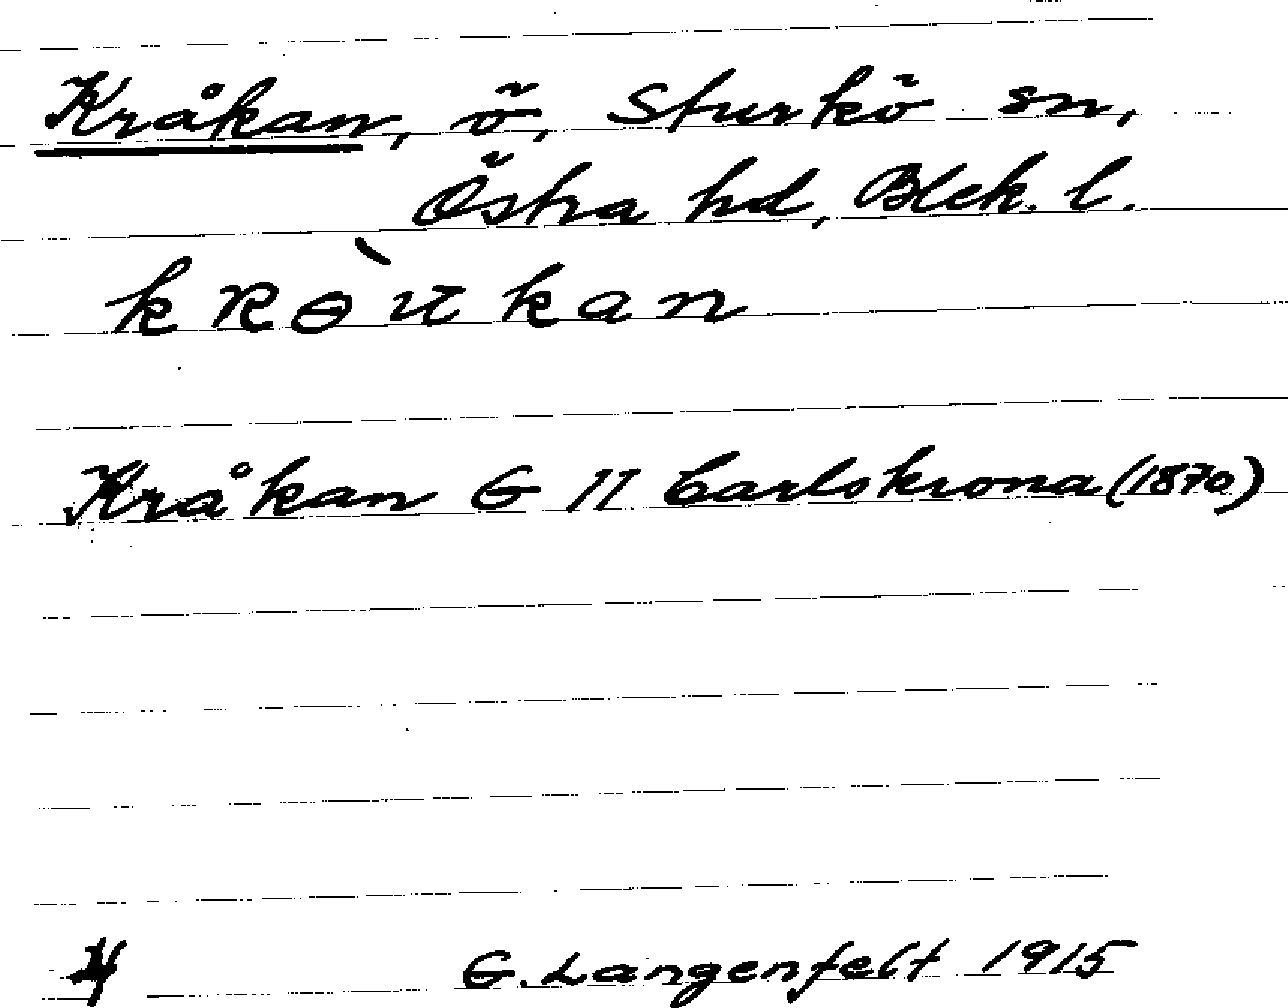 Kråkan, ö, Sturkö sn,
Östra hd, Blek. l.
kRɵ̀ukan
Kråkan G II Carlskrona (1870)
G. Langenfelt 1915